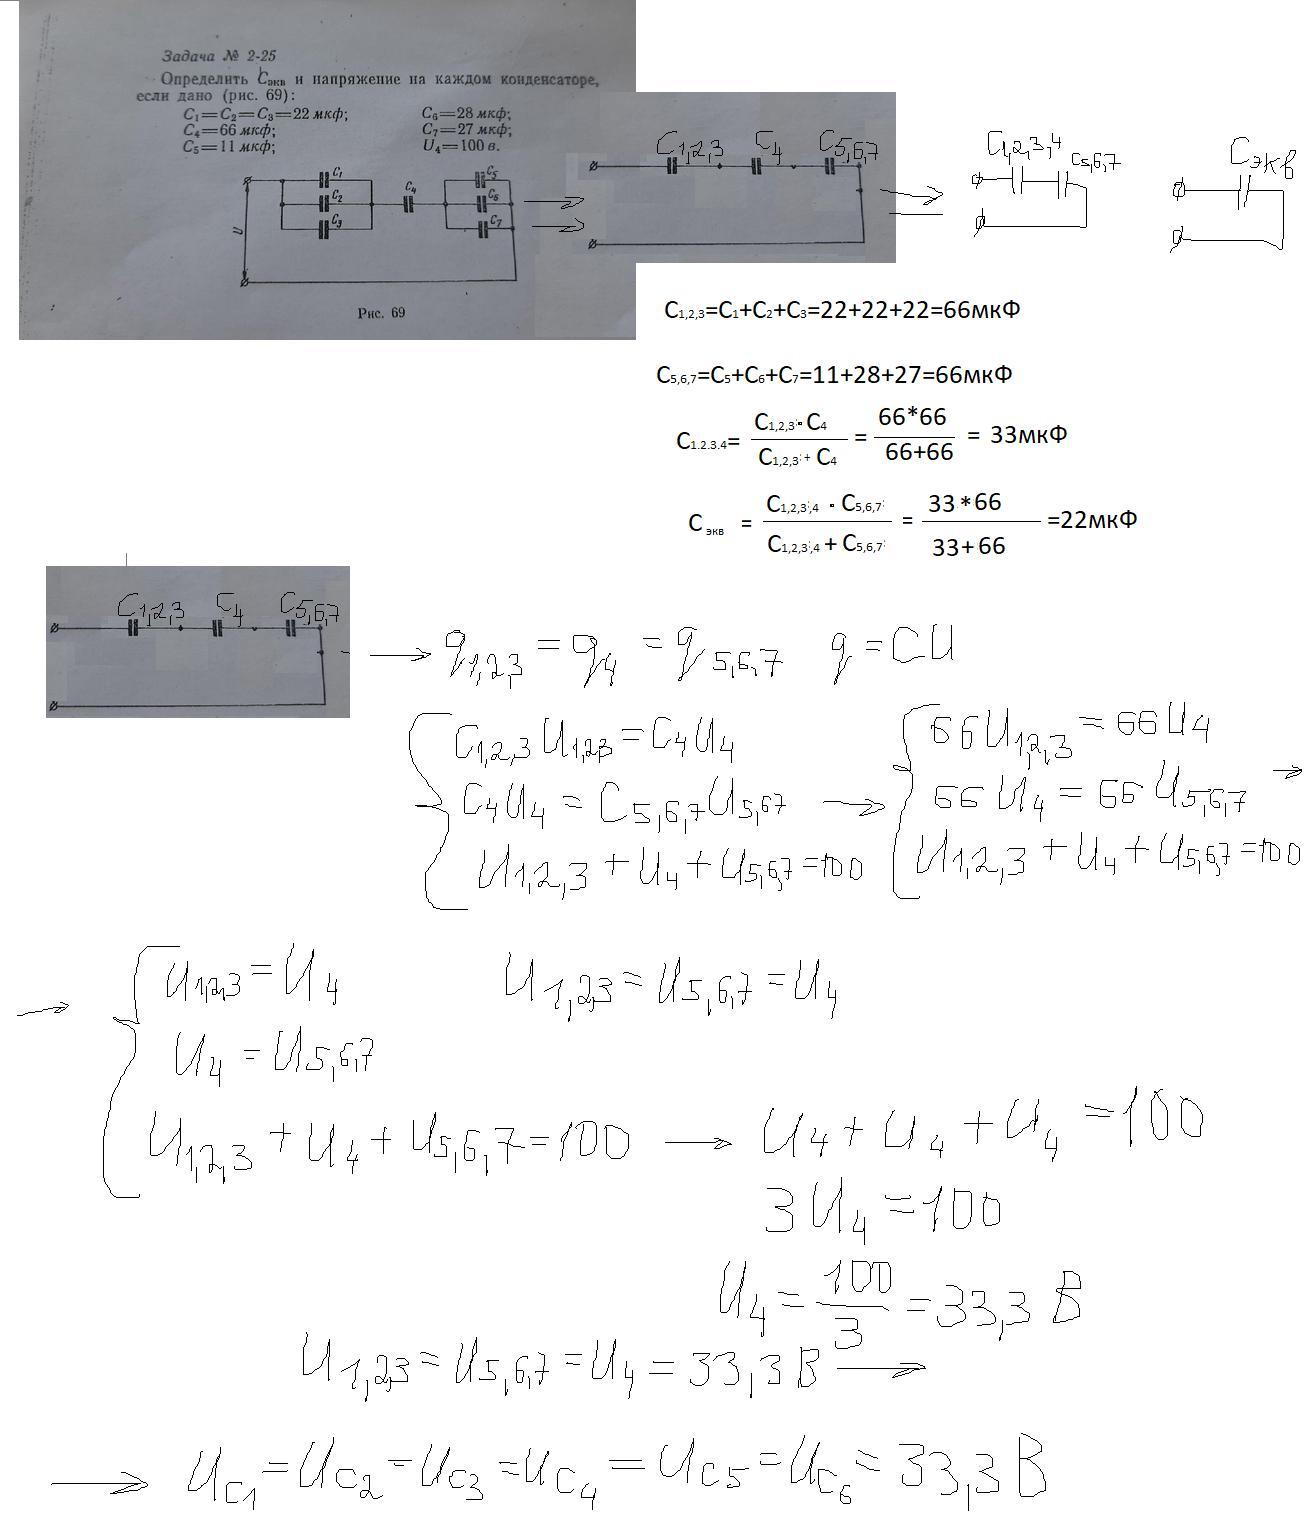 Задача № 2-25
Определить Cэкв и напряжение на каждом конденсаторе,
если дано (рис. 69):
C1=C2=C3=22 мкф; C6=28 мкф;
C4=66 мкф; C7=27 мкф;
C5=11 мкф; U4=100 в.
C1 C5
C2 C4 C6
C3 C7
U
Рис. 69
C1,2,3 C4 C5,6,7
C1,2,3,4 C5,6,7
Cэкв
C1,2,3=C1+C2+C3=22+22+22=66мкФ
C5,6,7=C5+C6+C7=11+28+27=66мкФ
C1.2.3.4= C1,2,3 · C4 / C1,2,3 + C4 = 66*66 / 66+66 = 33мкФ
C экв = C1,2,3,4 · C5,6,7 / C1,2,3,4 + C5,6,7 = 33*66 / 33+66 =22мкФ
C1,2,3 C4 C5,6,7
q1,2,3 = q4 = q5,6,7 q=CU
C1,2,3U1,2,3=C4U4
C4U4 = C5,6,7U5,67
U1,2,3+U4+U5,6,7=100
66U1,2,3=66U4
66U4=66U5,6,7
U1,2,3+U4+U5,6,7=100
U1,2,3=U4
U4=U5,6,7
U1,2,3+U4+U5,6,7=100
U1,2,3=U5,6,7=U4
U4+U4+U4=100
3U4=100
U4=100/3=33,3 В
U1,2,3=U5,6,7=U4=33,3В
UC1=UC2=UC3=UC4=UC5=UC6=33,3В